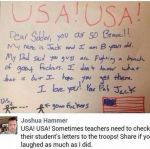 USA! USA!
Dear Soldier, you are so Brave!!
My name is Jack and I am 8 years old.
My Dad said you guys are Fighting a
bunch of Fuckers. I don't know what
that is but I hope you get them.
I love you! Your Pal Jack
Joshua Hammer
USA! USA! Sometimes teachers need to check
their student's letters to the troops! Share if you
laughed as much as I did.